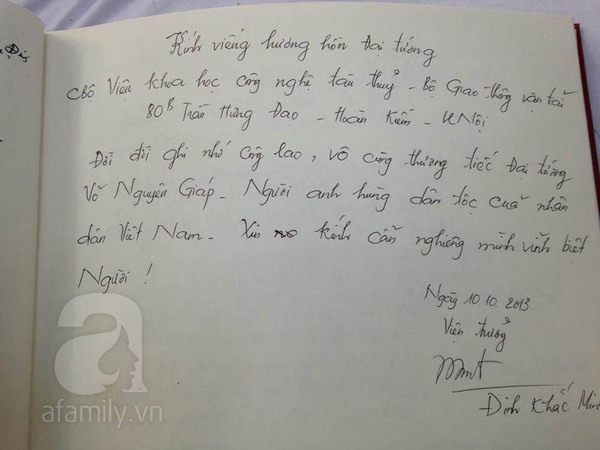 Kính viếng hương hồn Đại tướng
CBộ Viện khoa học công nghệ tàu thuỷ - Bộ Giao thông vận tải
80B Trần Hưng Đạo - Hoàn Kiếm - HNội
Đời đời ghi nhớ công lao, vô cùng thương tiếc Đại tướng
Võ Nguyên Giáp - Người anh hùng dân tộc của nhân
dân Việt Nam - Xin kính cẩn nghiêng mình vĩnh biệt
Người!
Ngày 10.10.2013
Viện trưởng
Đinh Khắc Min
a
afamily.vn